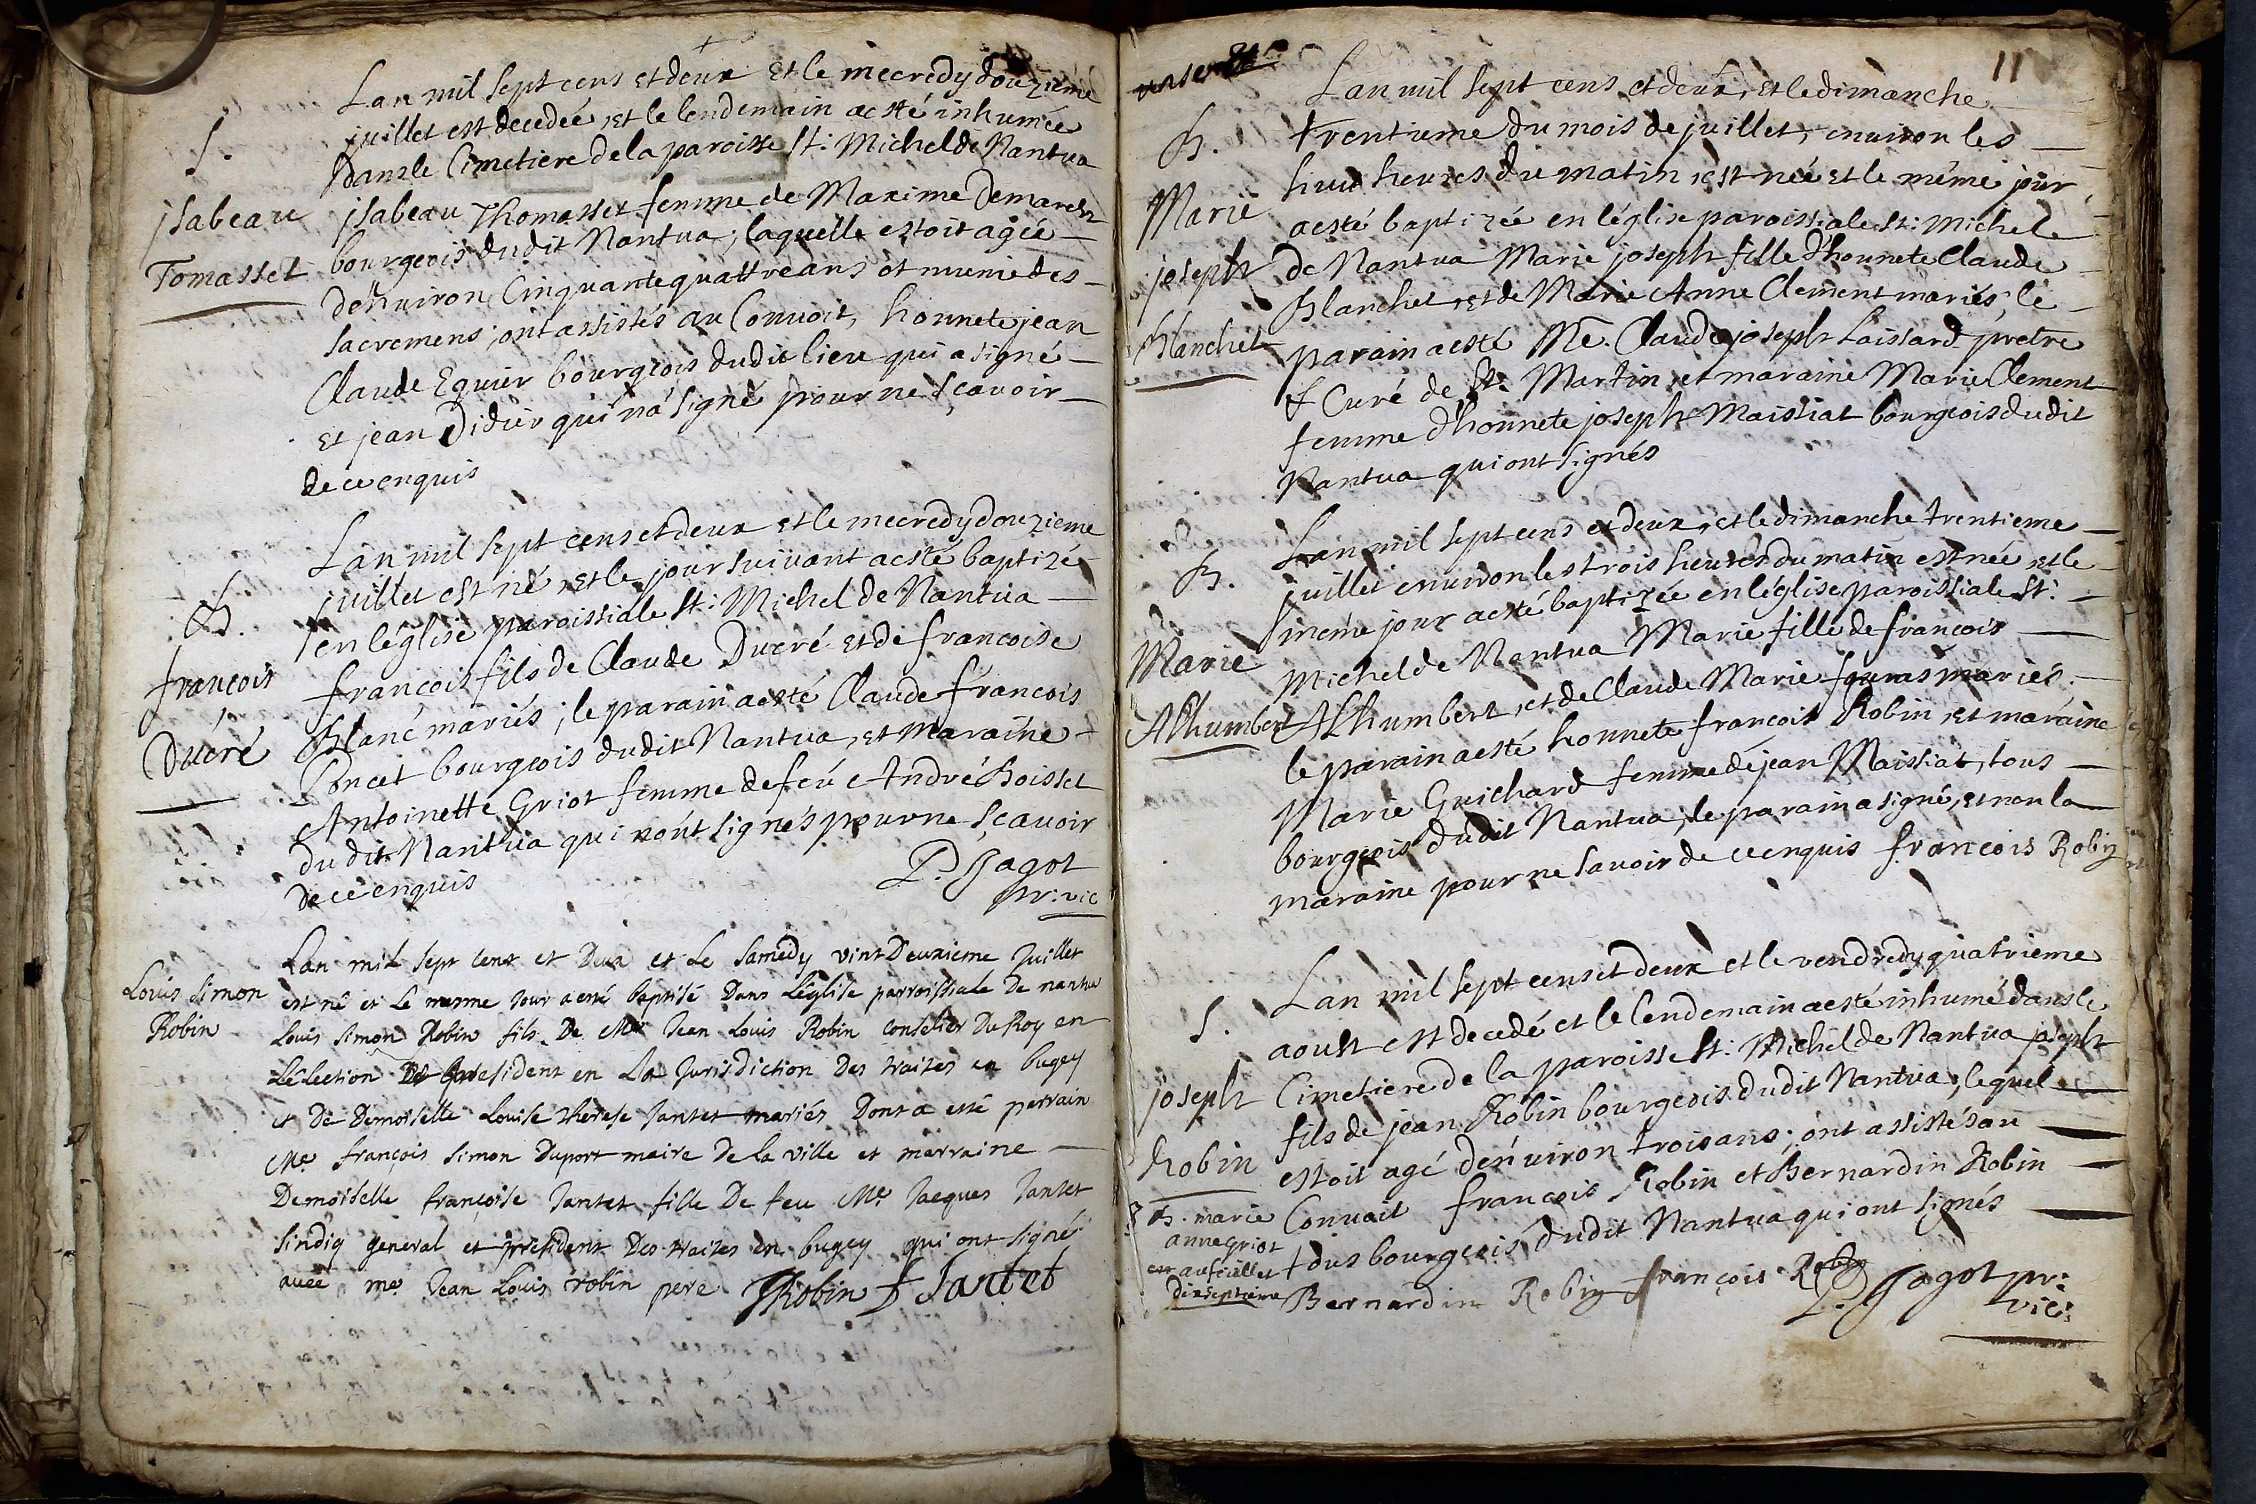 Lan mil sept cens et deux et le mecredy douzieme
juillet est decedée, et le lendemain a esté inhumée
dans le Cimetiere de la paroisse St: Michel de Nantua
S.
jsabeau
Tomasset
jsabeau Thomasset femme de Maxime Demareh
bourgeois dudit Nantua; laquelle estoit agée
denviron Cinquante quattre ans et munie des
sacremens; ont assistés au Convoit, honnete jean
Claude Eguier bourgeois dudit lieu qui a signé
et jean Didier qui n'a signé pour ne sçavoir
de ce enquis
Lan mil sept cens et deux et le mecredy douzieme
juillet est né, et le jour suivant a esté baptizé
en léglise paroissiale St: Michel de Nantua
B.
françois
Ducré
françois fils de Claude Ducré et de francoise
Blanc mariés; le parain a esté Claude françois
Poncet bourgeois dudit Nantua, et maraine
Antoinette Griot femme de feu André Boisset
du dit Nantua qui n'ont signés pour ne sçavoir
de ce enquis
P. Jagot
pr: vic
Lan mil sept cent et Deux et Le Samedy vint Deuxieme Juillet
Louis Simon
Robin
est né et Le mesme Jour a esté baptisé Dans L'église parroissiale De nantua
Louis Simon Robin fils De Me Jean Louis Robin conselier Du Roy en
Lélection président en La Jurisdiction Des traites en bugey
et De Demoiselle Louise therese Jantet mariés Dont a esté parrain
Me françois Simon Duport maire De la ville et marraine
Demoiselle françoise Jantet fille De feu Me Jacques Jantet
Sindiq general et président Des traites en bugey qui ont signé
avec me Jean Louis robin pere JRobin f Jantet
11
Lan mil sept cens et deux, et le dimanche
trentieme du mois de juillet, environ les
huit heures du matin, est née et le même jour
B.
Marie
joseph
Blanchet
a esté baptizée en léglise paroissiale St: Michel
de Nantua Marie joseph fille d'honnete Claude
Blanchet, et de Marie Anne Clement mariés; le
parain a esté Me. Claude joseph Laissard pretre
& Curé de St. Martin, et maraine Marie Clement
femme d'honnete joseph Maissiat bourgeois dudit
Nantua qui ont signés
Lan mil sept cens et deux, et le dimanche trentieme
juillet environ les trois heures du matin est née et le
B.
Marie
Alhumbert
meme jour a esté baptizée en léglise paroissiale St:
Michel de Nantua Marie fille de françois
Alhumbert, et de Claude Marie mariés;
le parain a esté honnete françois Robin, et maraine
Marie Guichard femme de jean Maissiat, tous
bourgeois dudit Nantua, le parain a signé, et non la
maraine pour ne savoir de ce enquis françois Robin
Lan mil sept cens et deux et le vendredy quatrieme
aoust est decedé et le lendemain a esté inhumé dans le
S.
joseph
Robin
Cimetiere de la paroisse St: Michel de Nantua joseph
fils de jean Robin bourgeois dudit Nantua; lequel
estoit agé denviron trois ans; ont assistés au
Convoit françois Robin et Bernardin Robin
tous bourgeois dudit Nantua qui ont signés
B. marie
anne griot
est au feuillet
dixseptieme
Bernardin Robin françois Robin
P. Jagot pr:
vic: